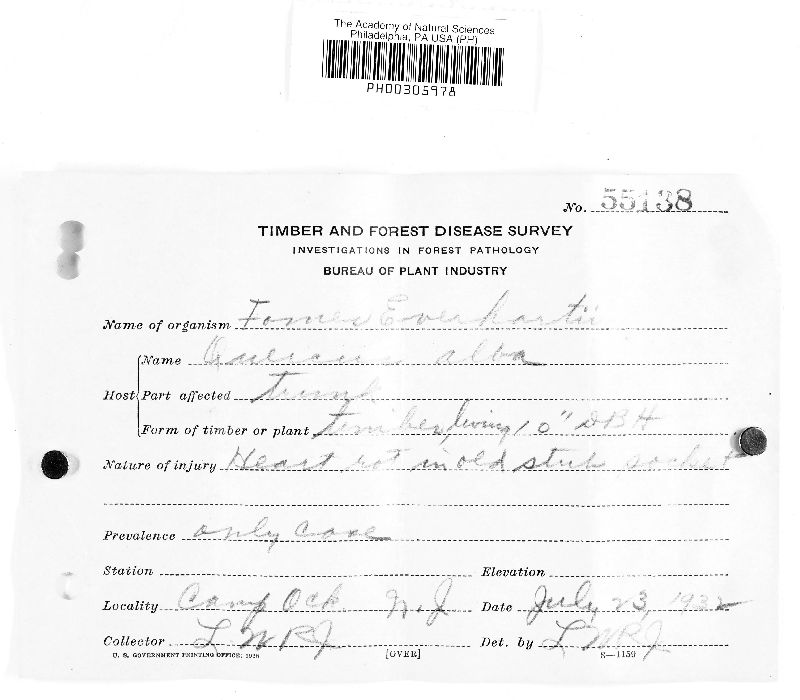 The Academy of Natural Sciences
Philadelphia, PA USA (PH)
PH00305978
No. 55138
TIMBER AND FOREST DISEASE SURVEY
INVESTIGATIONS IN FOREST PATHOLOGY
BUREAU OF PLANT INDUSTRY
Name of organism Fomes Everhartii
Name Quercus alba
Host Part affected trunk
Form of timber or plant timber, living 10" DBH
Nature of injury Heart rot in old stub socket
Prevalence only case
Station Elevation
Locality Camp Ock N.J Date July 23, 1932
Collector L W R J Det. by L W R J
U. S. GOVERNMENT PRINTING OFFICE: [OVER] 8—1159